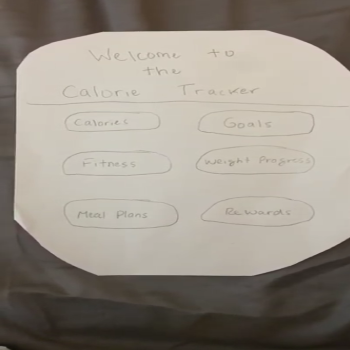 Welcome to
the
Calorie Tracker
Calories Goals
Fitness Weight Progress
Meal Plans Rewards